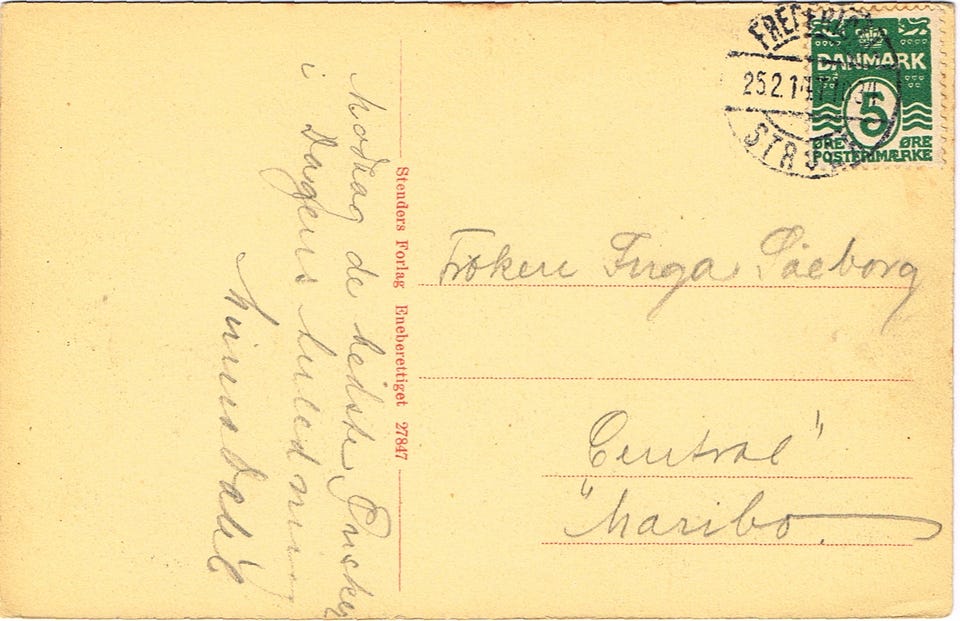 Modtag de bedste Ønsker
i Dagens Anledning
Dahl
Stenders Forlag Eneberettiget 27847
25.2.14
DANMARK
5
ØRE ØRE
POSTFRIMÆRKE
Frøken Inga Søeborg
Central"
"Maribo.